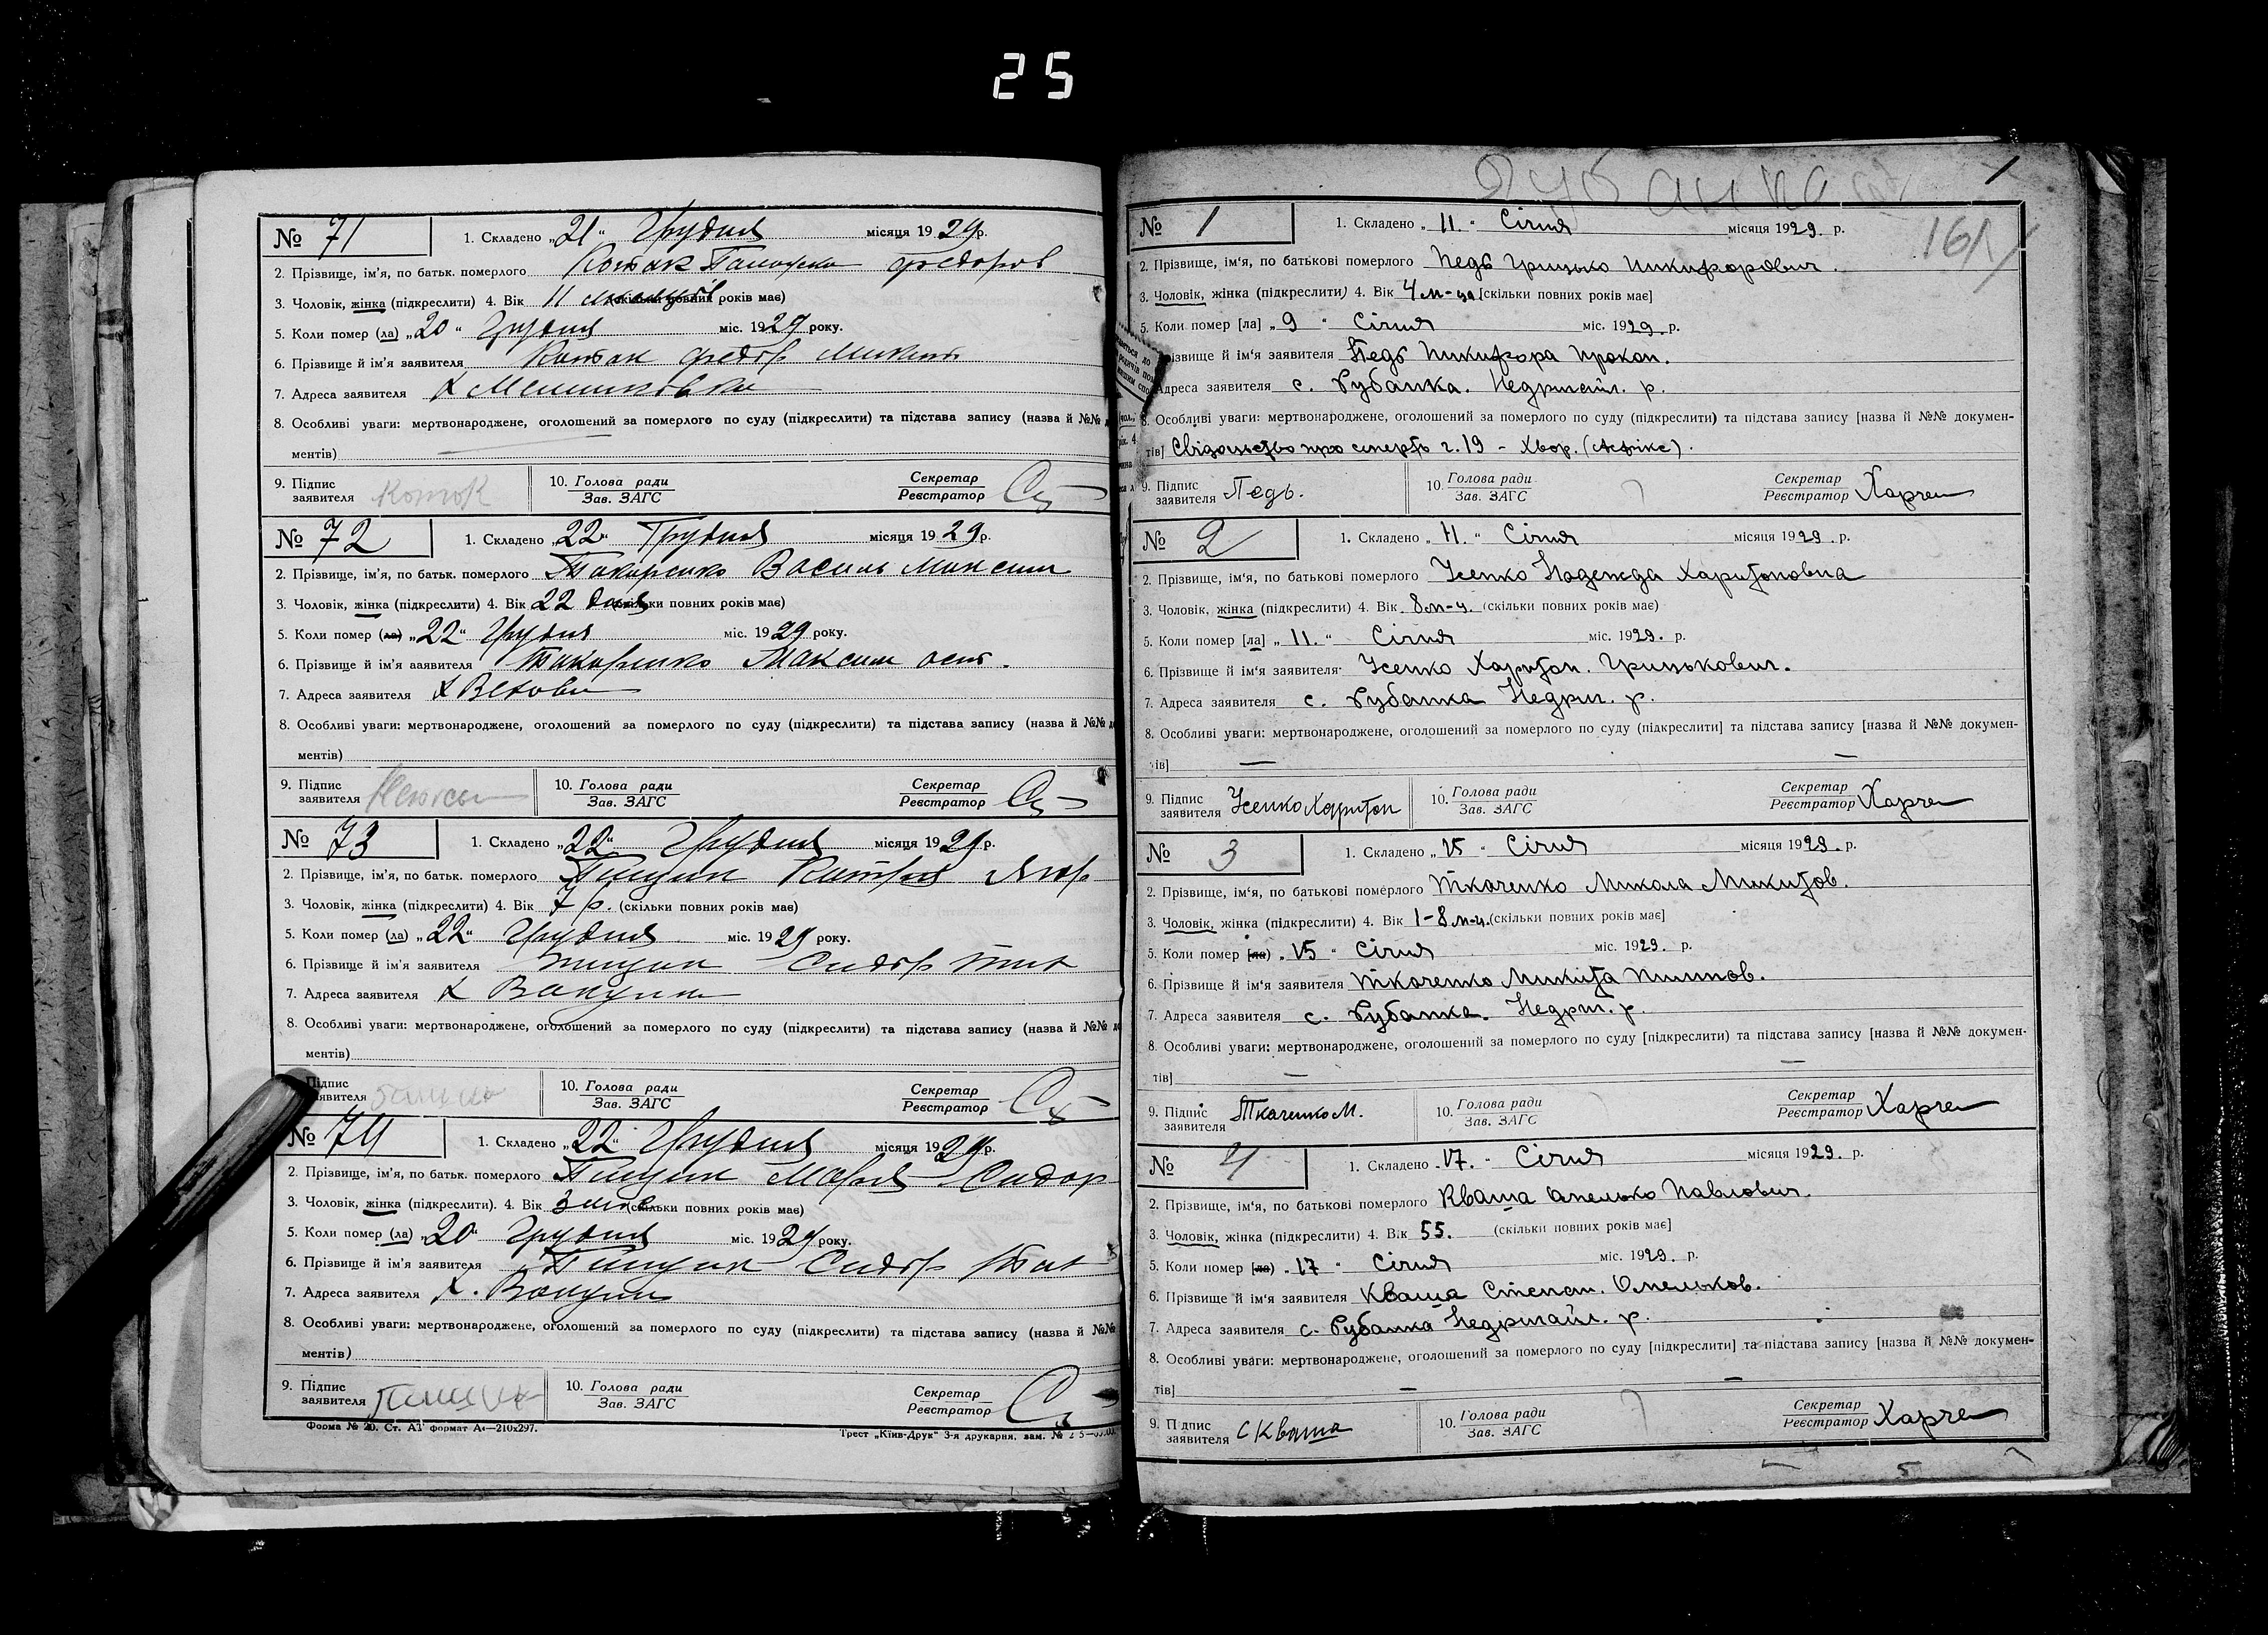 25
№ 71 1. Складено „21“ Грудня місяця 1929р.
2. Прізвище, ім'я, по батьк. померлого Федоров
3. Чоловік, жінка (підкреслити) 4. Вік 11 місяців (скільки повних років має)
5. Коли помер (ла) „20“ Грудня міс. 1929 року.
6. Прізвище й ім'я заявителя Федор Микит
7. Адреса заявителя х
8. Особливі уваги: мертвонароджене, оголошений за померлого по суду (підкреслити) та підстава запису (назва й №№
ментів)
9. Підпис заявителя Коток 10. Голова ради Зав. ЗАГС Секретар Реєстратор
№ 72 1. Складено „22“ Грудня місяця 1929р.
2. Прізвище, ім'я, по батьк. померлого Токаренко Василь Максим
3. Чоловік, жінка (підкреслити) 4. Вік 22 дня (скільки повних років має)
5. Коли помер (ла) „22“ Грудня міс. 1929 року.
6. Прізвище й ім'я заявителя Токаренко Максим
7. Адреса заявителя х
8. Особливі уваги: мертвонароджене, оголошений за померлого по суду (підкреслити) та підстава запису (назва й №№
ментів)
9. Підпис заявителя 10. Голова ради Зав. ЗАГС Секретар Реєстратор
№ 73 1. Складено „22“ Грудня місяця 1929р.
2. Прізвище, ім'я, по батьк. померлого
3. Чоловік, жінка (підкреслити) 4. Вік 7 р. (скільки повних років має)
5. Коли помер (ла) „22“ Грудня міс. 1929 року.
6. Прізвище й ім'я заявителя Сидор Тит
7. Адреса заявителя х
8. Особливі уваги: мертвонароджене, оголошений за померлого по суду (підкреслити) та підстава запису (назва й №№
ментів)
Підпис заявителя 10. Голова ради Зав. ЗАГС Секретар Реєстратор
№ 74 1. Складено „22“ Грудня місяця 1929р.
2. Прізвище, ім'я, по батьк. померлого Марія Сидор
3. Чоловік, жінка (підкреслити). 4. Вік 3 (скільки повних років має)
5. Коли помер (ла) „20“ Грудня міс. 1929 року.
6. Прізвище й ім'я заявителя Сидор Тит
7. Адреса заявителя х.
8. Особливі уваги: мертвонароджене, оголошений за померлого по суду (підкреслити) та підстава запису (назва й №№
ментів)
9. Підпис заявителя 10. Голова ради Зав. ЗАГС Секретар Реєстратор
Форма № 20. Ст. А3 формат А4—210х297. Трест „Київ-Друк“ 3-я друкарня, зам. №
1
161
№ 1 1. Складено „11.“ Січня місяця 1929. р.
2. Прізвище, ім'я, по батькові померлого Педь Грицько Никифорович.
3. Чоловік, жінка (підкреслити) 4. Вік 4 м-ця [скільки повних років має]
5. Коли помер [ла] „9“ Січня міс. 1929. р.
ізвище й ім'я заявителя Педь Никифора Прокоп.
Адреса заявителя с. Рубанка. Недригайл. р.
8. Особливі уваги: мертвонароджене, оголошений за померлого по суду (підкреслити) та підстава запису [назва й №№ докумен-
тів] Свідоцтво про смерть ч. 19 – Хвор.
9. Підпис заявителя Педь. 10. Голова ради Зав. ЗАГС Секретар Реєстратор Харче
№ 2 1. Складено „11.“ Січня місяця 1929. р.
2. Прізвище, ім'я, по батькові померлого Усенко Надежда Харитоновна
3. Чоловік, жінка (підкреслити) 4. Вік 8 м-ц. (скільки повних років має)
5. Коли помер [ла] „11.“ Січня міс. 1929. р.
6. Прізвище й ім'я заявителя Усенко Харитон. Грицькович.
7. Адреса заявителя с. Рубанка Недриг. р.
8. Особливі уваги: мертвонароджене, оголошений за померлого по суду (підкреслити] та підстава запису [назва й №№ докумен-
тів] — —
9. Підпис заявителя Усенко Харитон 10. Голова ради Зав. ЗАГС Секретар Реєстратор Харче
№ 3 1. Складено „15“ Січня місяця 1929. р.
2. Прізвище, ім'я, по батькові померлого Ткаченко Микола Микитов.
3. Чоловік, жінка (підкреслити) 4. Вік 1-8 м-ц. (скільки повних років має]
5. Коли помер [ла) „15“ Січня міс. 1929. р.
6. Прізвище й ім'я заявителя Ткаченко Микита Пилипов.
7. Адреса заявителя с. Рубанка. Недриг. р.
8. Особливі уваги: мертвонароджене, оголошений за померлого по суду [підкреслити) та підстава запису [назва й №№ докумен-
тів] — —
9. Підпис заявителя Ткаченко М. 10. Голова ради Зав. ЗАГС Секретар Реєстратор Харче
№ 4 1. Складено „17.“ Січня місяця 1929. р.
2. Прізвище, ім'я, по батькові померлого Кваша Омелько Павлович.
3. Чоловік, жінка (підкреслити) 4. Вік 55. (скільки повних років має]
5. Коли помер [ла) „17“ Січня міс. 1929. р.
6. Прізвище й ім'я заявителя Кваша Степан. Омельков.
7. Адреса заявителя с. Рубанка Недригайл. р.
8. Особливі уваги: мертвонароджене, оголошений за померлого по суду [підкреслити] та підстава запису [назва й №№ докумен-
тів] — —
9. Підпис заявителя С Кваша 10. Голова ради Зав. ЗАГС Секретар Реєстратор Харче